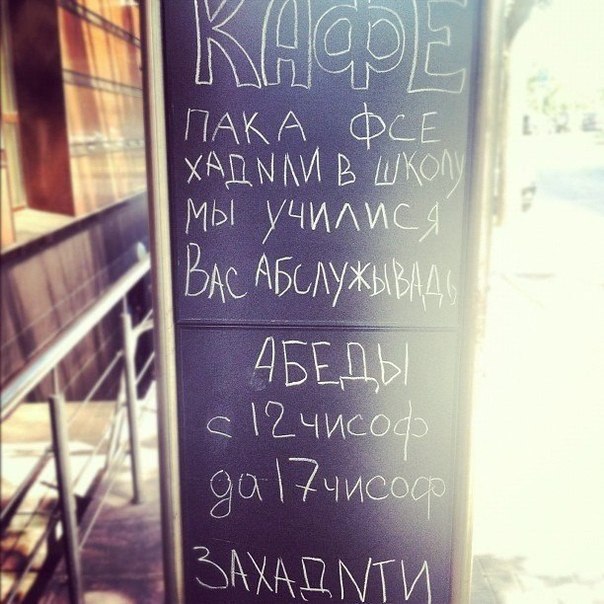 КАФЕ
ПАКА ФСЕ
ХАДИЛИ В ШКОЛУ
МЫ УЧИЛИСЯ
ВАС АБСЛУЖЫВАДЬ
АБЕДЫ
с 12 чисоф
да 17 чисоф
ЗАХАДИТИ